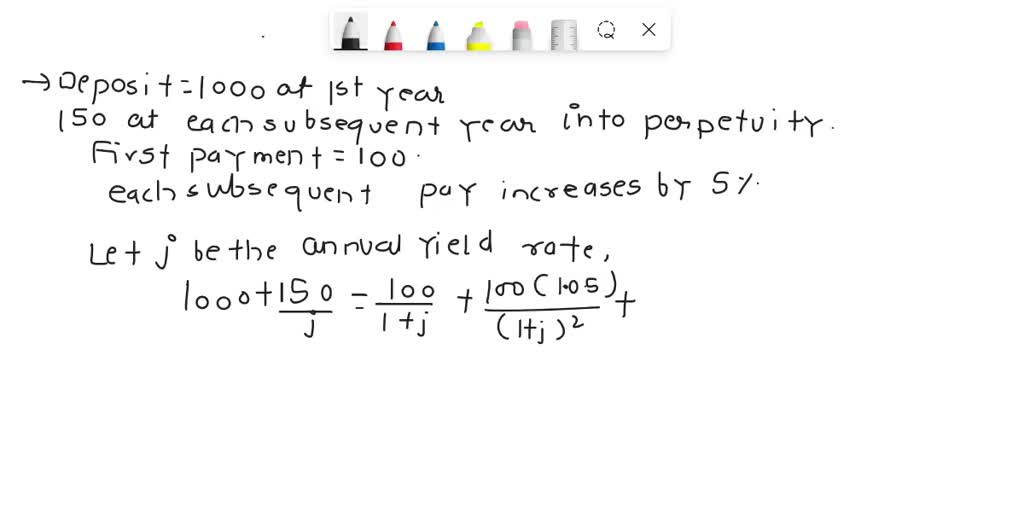 → Deposit = 1000 at 1st year
150 at each subsequent year into perpetuity.
First payment = 100.
each subsequent pay increases by 5%.
Let j be the annual yield rate,
1000 + 150/j = 100/1+j + 100(1.05)/(1+j)² +